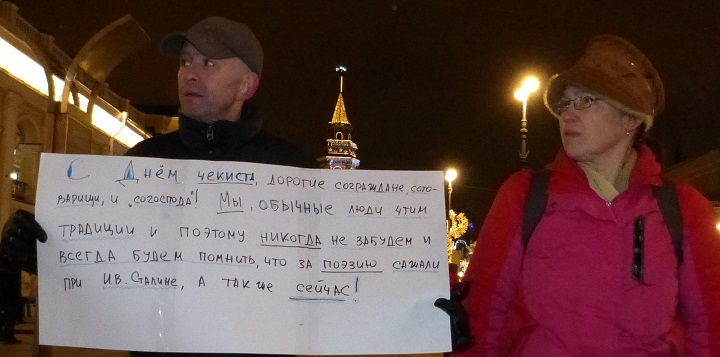 С Днём чекиста, дорогие сограждане, сото-
варищи, и „согоспода"! Мы, обычные люди чтим
традиции и поэтому никогда не забудем и
всегда будем помнить, что за поэзию сажали
при И.В. Сталине, а также сейчас!